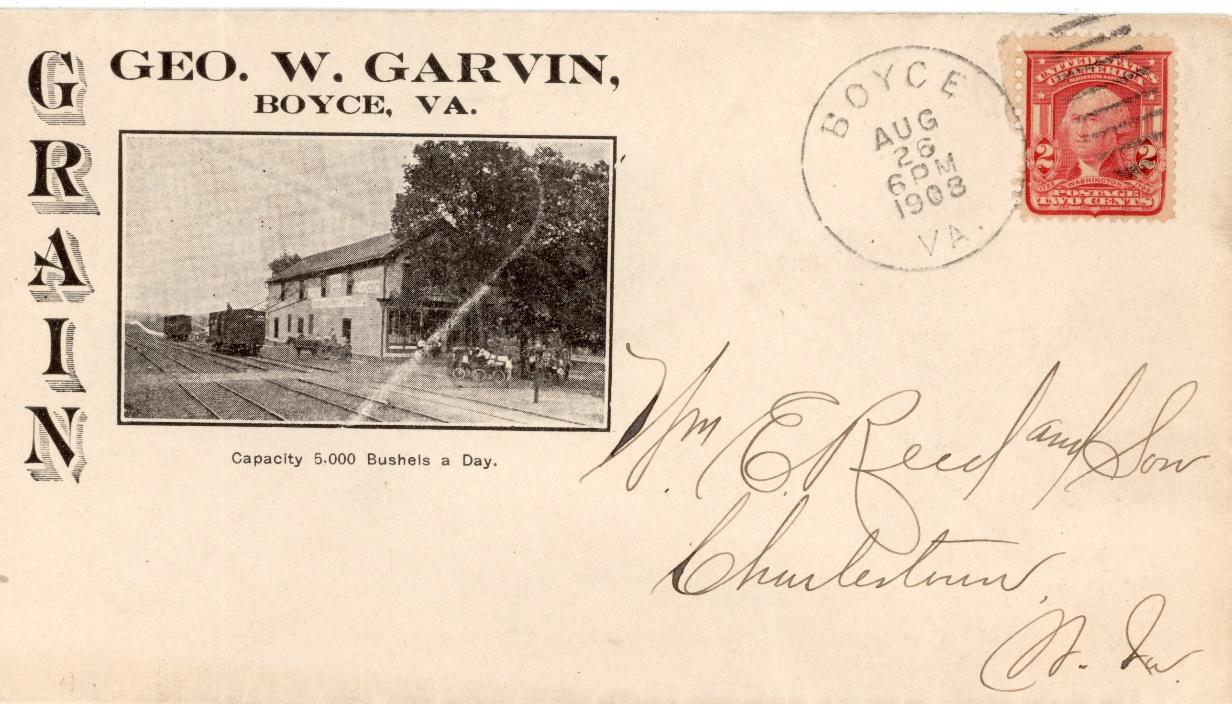 GRAIN
GEO. W. GARVIN,
BOYCE, VA.
Capacity 5,000 Bushels a Day.
BOYCE
AUG
26
6 PM
1908
VA.
UNITED STATES
OF AMERICA
2 2
WASHINGTON
POSTAGE
TWO CENTS
Wm E. Reed and Son
Charlestown,
W. Va.